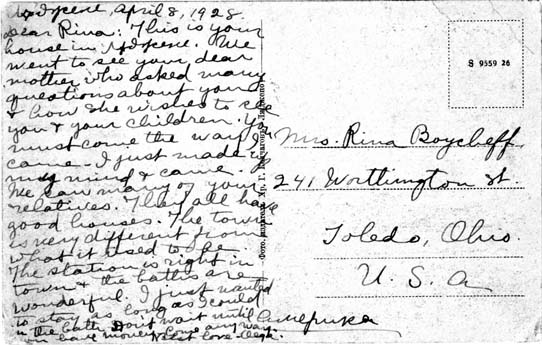 April 8, 1928.
Dear Rina: This is your
house in We
went to see your dear
mother who asked many
questions about you
& how she wishes to see
you & your children. You
must come the way I
came. I just made up
my mind & came.
We saw many of your
relatives. They all have
good houses. The town
is very different from
what it used to be.
The station is right in
town & the baths are
wonderful. I just wanted
to stay as long as I could
in the bath. Don't wait until
you have money. Come any way.
love
Фото. издател. Хр. Г.
S 9559 26
Mrs. Rina Boycheff
241 Worthington St.
Toledo, Ohio
U. S. A
Америка